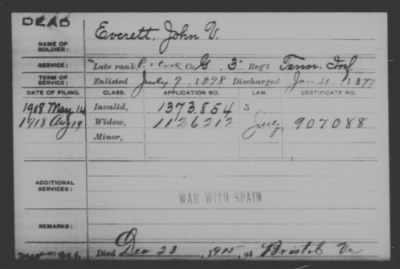 DEAD
NAME OF SOLDIER: Everett, John V.
SERVICE: Late rank Co. G, 3 Reg't Tenn. Inf
TERM OF SERVICE: Enlisted July 9, 1898 Discharged Jan 31 1899
DATE OF FILING. CLASS. APPLICATION NO. LAW CERTIFICATE NO.
1918 May 14 Invalid, 1373.854 S
1918 Aug 19 Widow, 1126212 907088
Minor,
ADDITIONAL SERVICES:
WAR WITH SPAIN
REMARKS:
Died Dec 23, 1915, at Bristol Va